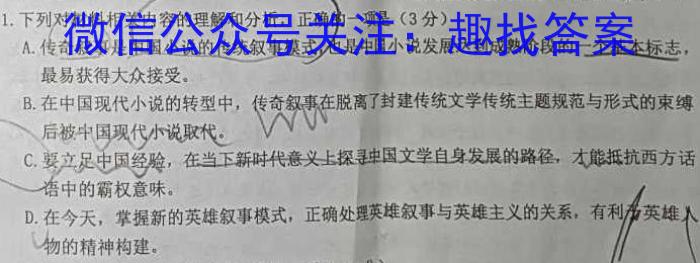 1.下列对材料相关内容的理解和分析，正确的一项是（3分）
微信公众号关注：趣找答案
A.传奇叙事是中国小说的传统叙事模式，也是中国小说发展到成熟阶段的一个基本标志，
最易获得大众接受。
B.在中国现代小说的转型中，传奇叙事在脱离了封建传统文学传统主题规范与形式的束缚
后被中国现代小说取代。
C.要立足中国经验，在当下新时代意义上探寻中国文学自身发展的路径，才能抵抗西方话
语中的霸权意味。
D.在今天，掌握新的英雄叙事模式，正确处理英雄叙事与英雄主义的关系，有利于英雄人
物的精神构建。